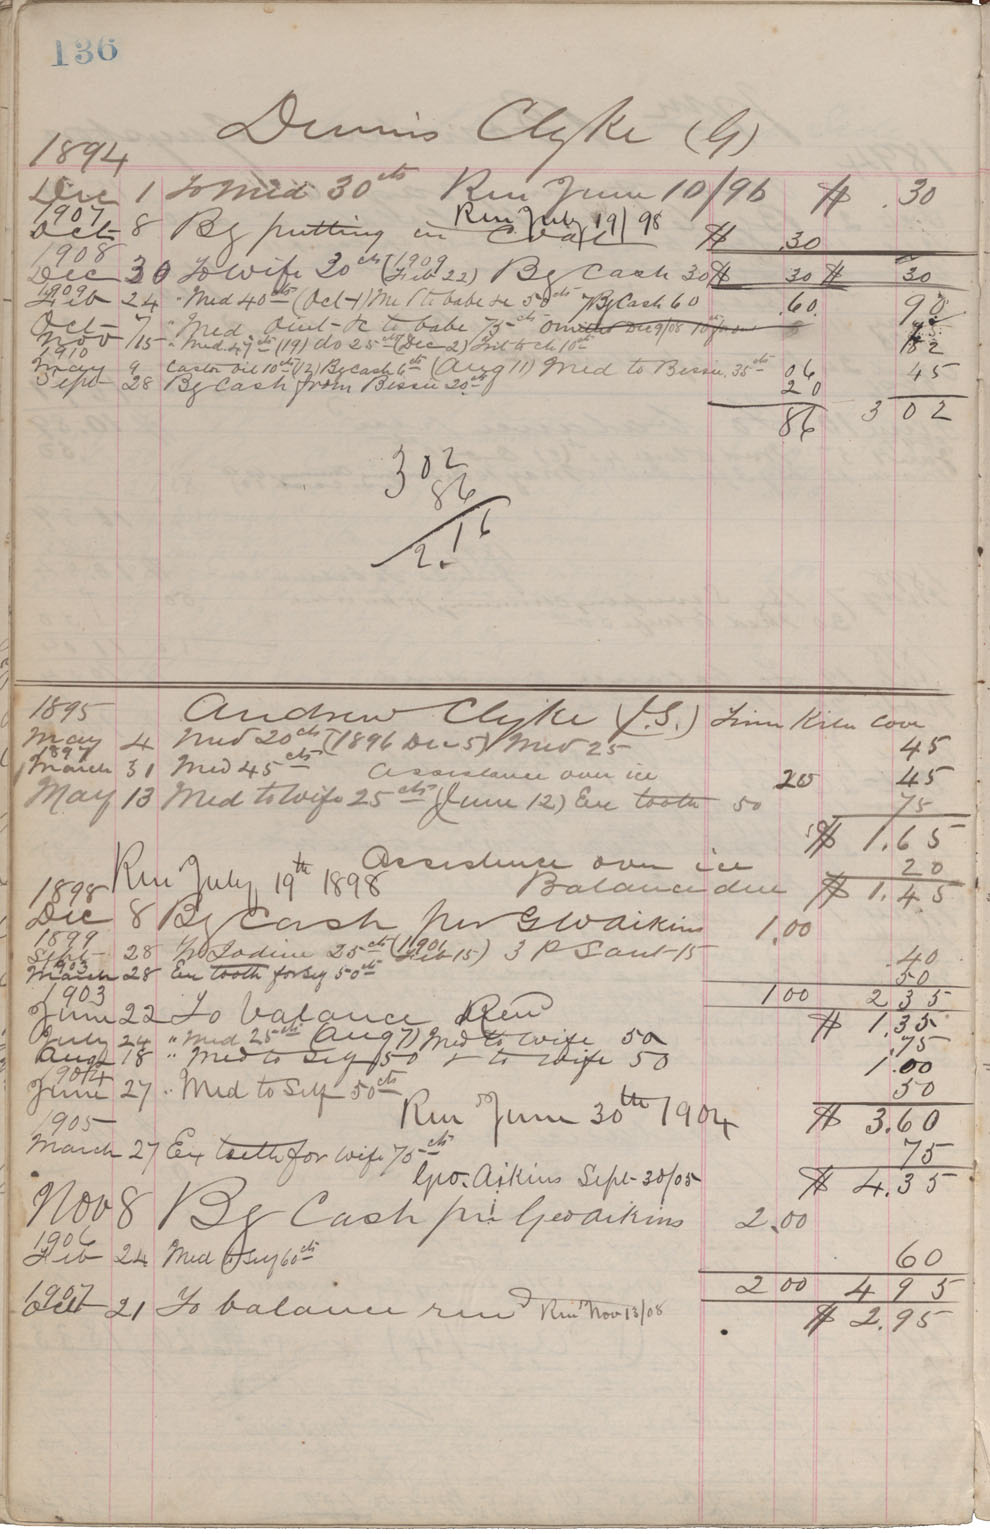 136
Dennis Clyke (G)
1894
Dec 1 To Med 30cts Ren June 10/96 $ .30
1907 Ren July 19/98
Oct 8 By putting in Coal $ .30
1908
Dec 30 To Wife 30cts (1909 Feb 22) By Cash 30 $ 30 $ 30
1909
Feb 24 " Med 40cts (Oct 1) Med to babe &c 50cts By Cash 60 .60 90
Oct 7 " Med. Oint &c to babe 75cts
Nov 15 " Med 47cts (19) do 25cts (Dec 2) to ch 10cts 82
1910
May 9 Castor Oil 10cts (12) By Cash 6cts (Aug 11) Med to Bessie 35cts 06 45
Sept 28 By Cash from Bessie 20cts 20
86 3 02
302
86
2.16
1895 Andrew Clyke (J.S.) Lime Kiln Cove
May 4 Med 20cts (1896 Dec 5) Med 25 45
1897
March 31 Med 45cts Assistance over ice 20 45
May 13 Med to Wife 25cts (June 12) Ex tooth 50 75
$ 1.65
Assistance over ice 20
Ren July 19th 1898 Balance due $ 1.45
1898
Dec 8 By Cash per GW Aikins 1.00
1899
Sept 28 To Iodine 25cts (1901 Feb 15) 3 P Sant 15 .40
1903
March 28 Ex tooth for Sey 50cts 50
1 00 2 35
1903
June 22 To balance Ren $ 1.35
July 24 " Med 25cts (Aug 7) Med to Wife 50 .75
Aug 18 " Med to Self 50 & to Wife 50 1.00
1904
June 27 " Med to Self 50cts 50
Ren June 30th 1904 $ 3.60
1905
March 27 Ex teeth for wife 75cts 75
Geo. Aikins Sept 30/05 $ 4.35
Nov 8 By Cash per Geo Aikins 2.00
1906
Feb 24 Med to Self 60cts 60
2 00 4 95
1907
Oct 21 To balance rend Ren Nov 13/08 $ 2.95